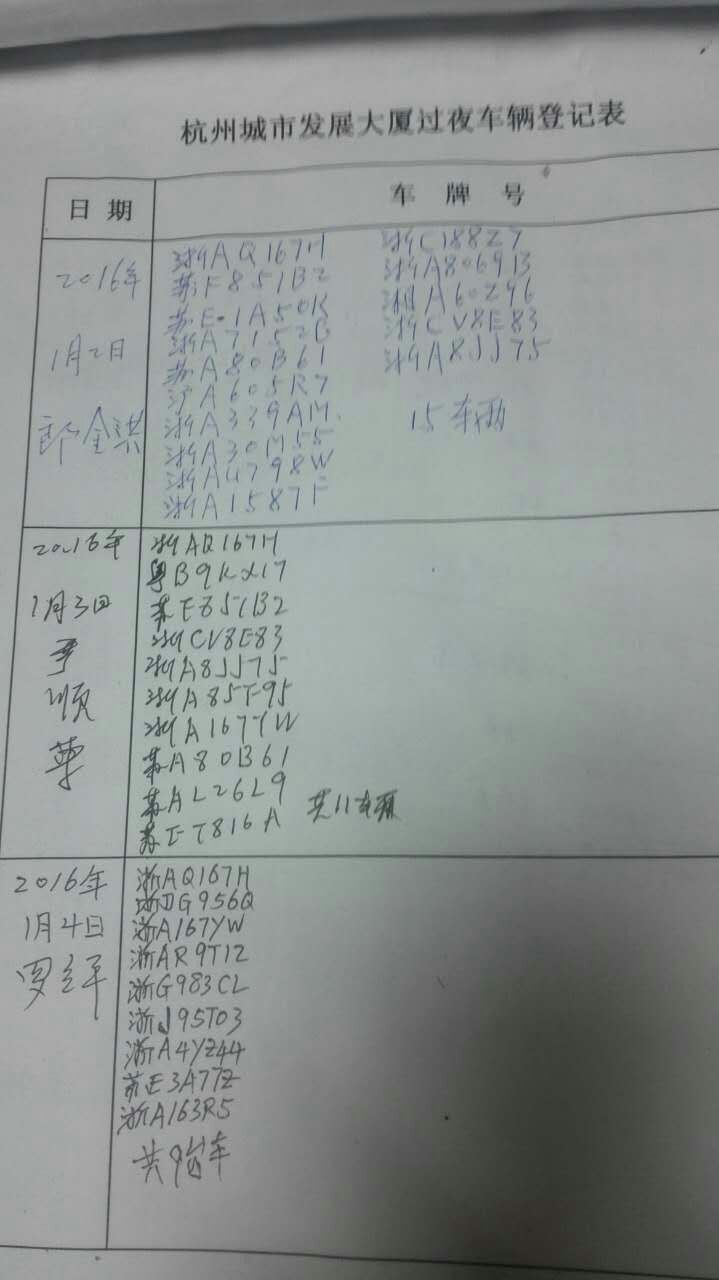 杭州城市发展大厦过夜车辆登记表
日期
车牌号
2016年
1月2日
郎金洪
浙AQ167H
苏F851B2
苏E·1A50K
浙A7152B
苏A80B61
沪A605R7
浙A339AM
浙A30M55
浙A4798W
浙A1587F
浙C188Z7
浙A806913
浙A60Z96
浙CV8E83
浙A8JJ75
15车辆
2016年
1月3日
顺
浙AQ167H
粤B9KX17
苏E851B2
浙CV8E83
浙A8JJ75
浙A85F95
浙A167YW
苏A80B61
苏AL26L9
苏ET816A
共11车辆
2016年
1月4日
浙AQ167H
浙DG956Q
浙A167YW
浙AR9T12
浙G983CL
浙J95T03
浙A4YZ44
苏E3A77Z
浙A163R5
共9台车